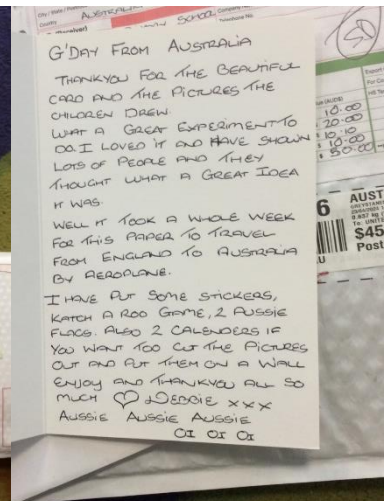 City / State /
Country
AUSTRALIA
(Receiver)
SCHOOL
Company
Telephone No.
G'DAY FROM AUSTRALIA
THANKYOU FOR THE BEAUTIFUL
CARD AND THE PICTURES THE
CHILDREN DREW.
WHAT A GREAT EXPERIMENT TO
DO. I LOVED IT AND HAVE SHOWN
LOTS OF PEOPLE AND THEY
THOUGHT WHAT A GREAT IDEA
IT WAS.
WELL IT TOOK A WHOLE WEEK
FOR THIS PAPER TO TRAVEL
FROM ENGLAND TO AUSTRALIA
BY AEROPLANE.
I HAVE PUT SOME STICKERS,
KATCH A ROO GAME, 2 AUSSIE
FLAGS. ALSO 2 CALENDERS IF
YOU WANT TOO CUT THE PICTURES
OUT AND PUT THEM ON A WALL
ENJOY AND THANKYOU ALL SO
MUCH ♡ DEBBIE xxx
AUSSIE AUSSIE AUSSIE
OI OI OI
(AUD$)
10.00
20.00
10.10
10.00
50.00
6
AUST
$45
Post